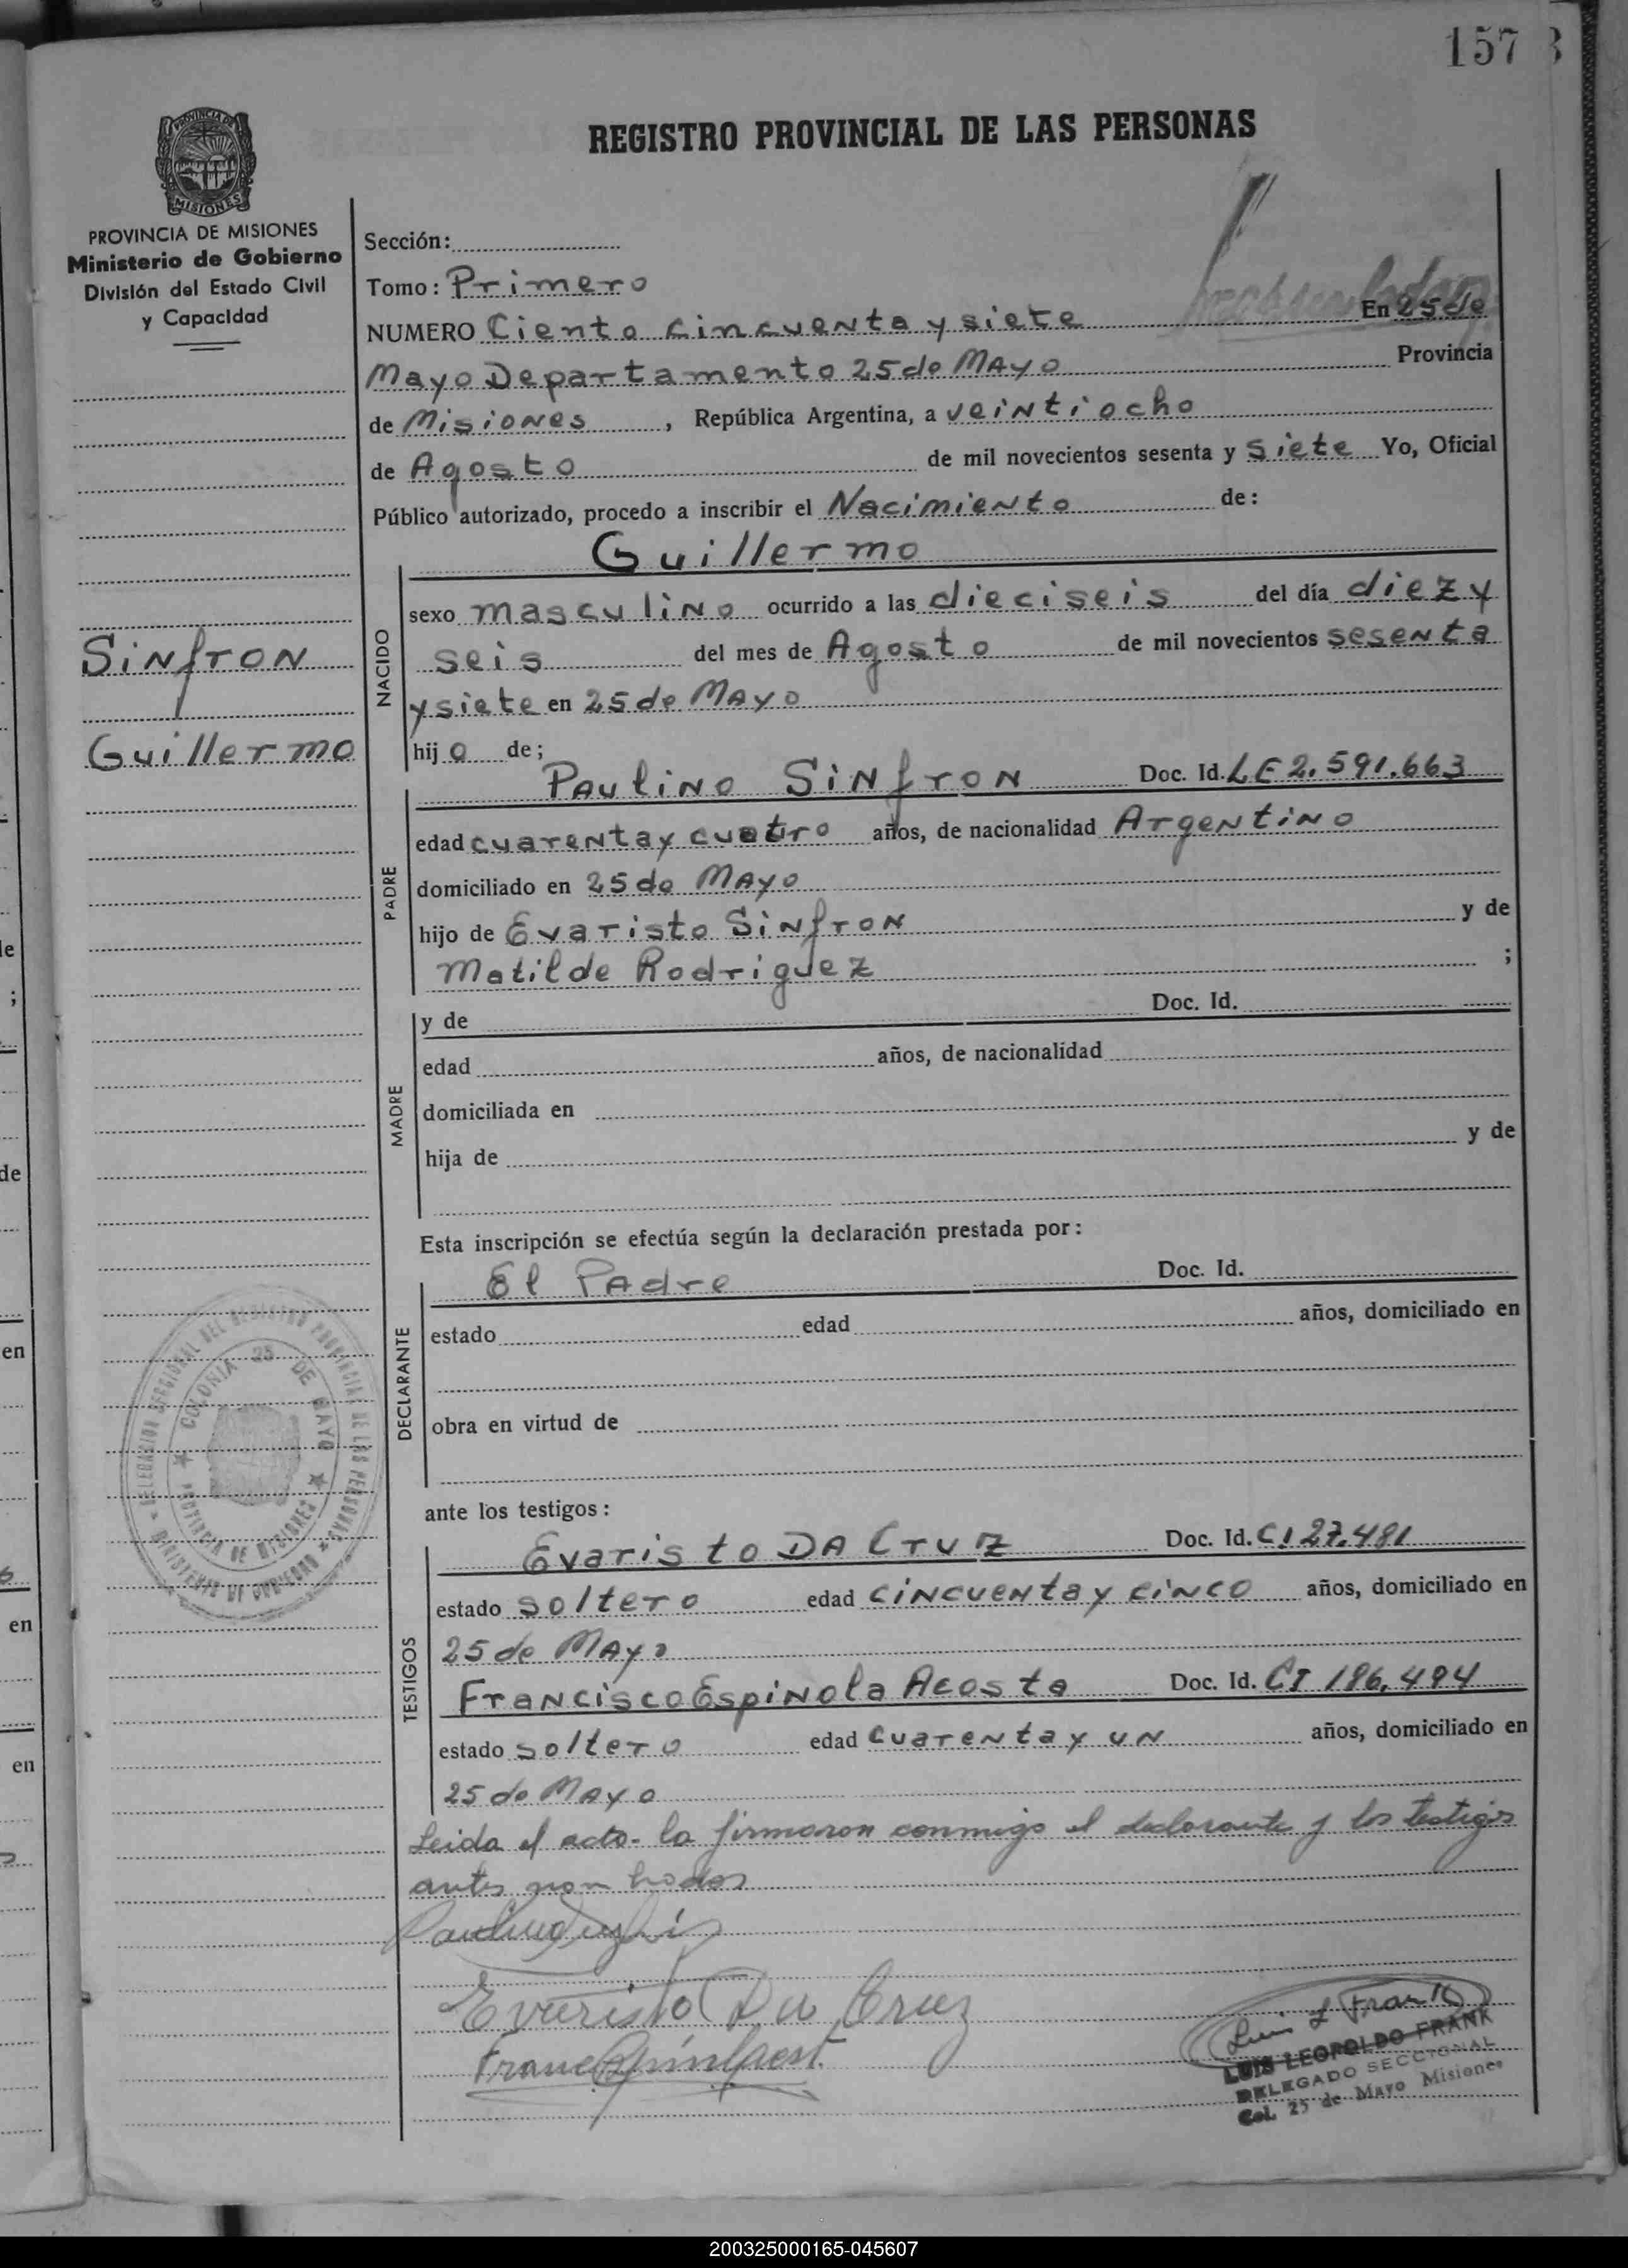 157
REGISTRO PROVINCIAL DE LAS PERSONAS
PROVINCIA DE MISIONES
Ministerio de Gobierno
División del Estado Civil
y Capacidad
Sección:
Tomo: Primero
NUMERO Ciento cincuenta y siete En 25 de
Mayo Departamento 25 de Mayo Provincia
de Misiones, República Argentina, a veintiocho
de Agosto de mil novecientos sesenta y siete Yo, Oficial
Público autorizado, procedo a inscribir el Nacimiento de:
Guillermo
NACIDO
sexo masculino ocurrido a las dieciseis del día diez y
seis del mes de Agosto de mil novecientos sesenta
y siete en 25 de Mayo
hijo de;
Sinfron
Guillermo
PADRE
Paulino Sinfron Doc. Id. LE 2.591.663
edad cuarenta y cuatro años, de nacionalidad Argentino
domiciliado en 25 de Mayo
hijo de Evaristo Sinfron y de
Matilde Rodriguez ;
MADRE
y de Doc. Id.
edad años, de nacionalidad
domiciliada en
hija de y de
Esta inscripción se efectúa según la declaración prestada por:
DECLARANTE
El Padre Doc. Id.
estado edad años, domiciliado en
obra en virtud de
DELEGACION SECCIONAL DEL REGISTRO PROVINCIAL DE LAS PERSONAS
MINISTERIO DE GOBIERNO
COLONIA 25 DE MAYO
PROVINCIA DE MISIONES
ante los testigos:
TESTIGOS
Evaristo DA Cruz Doc. Id. CI 27.481
estado soltero edad cincuenta y cinco años, domiciliado en
25 de Mayo
Francisco Espinola Acosta Doc. Id. CI 186.494
estado soltero edad cuarenta y un años, domiciliado en
25 de Mayo
Leida el acta. la firmaron conmigo el declarante y los testigos
antes nombrados
Evaristo Da Cruz
Luis L Frank
LUIS LEOPOLDO FRANK
DELEGADO SECCIONAL
Col. 25 de Mayo Misiones
200325000165-045607